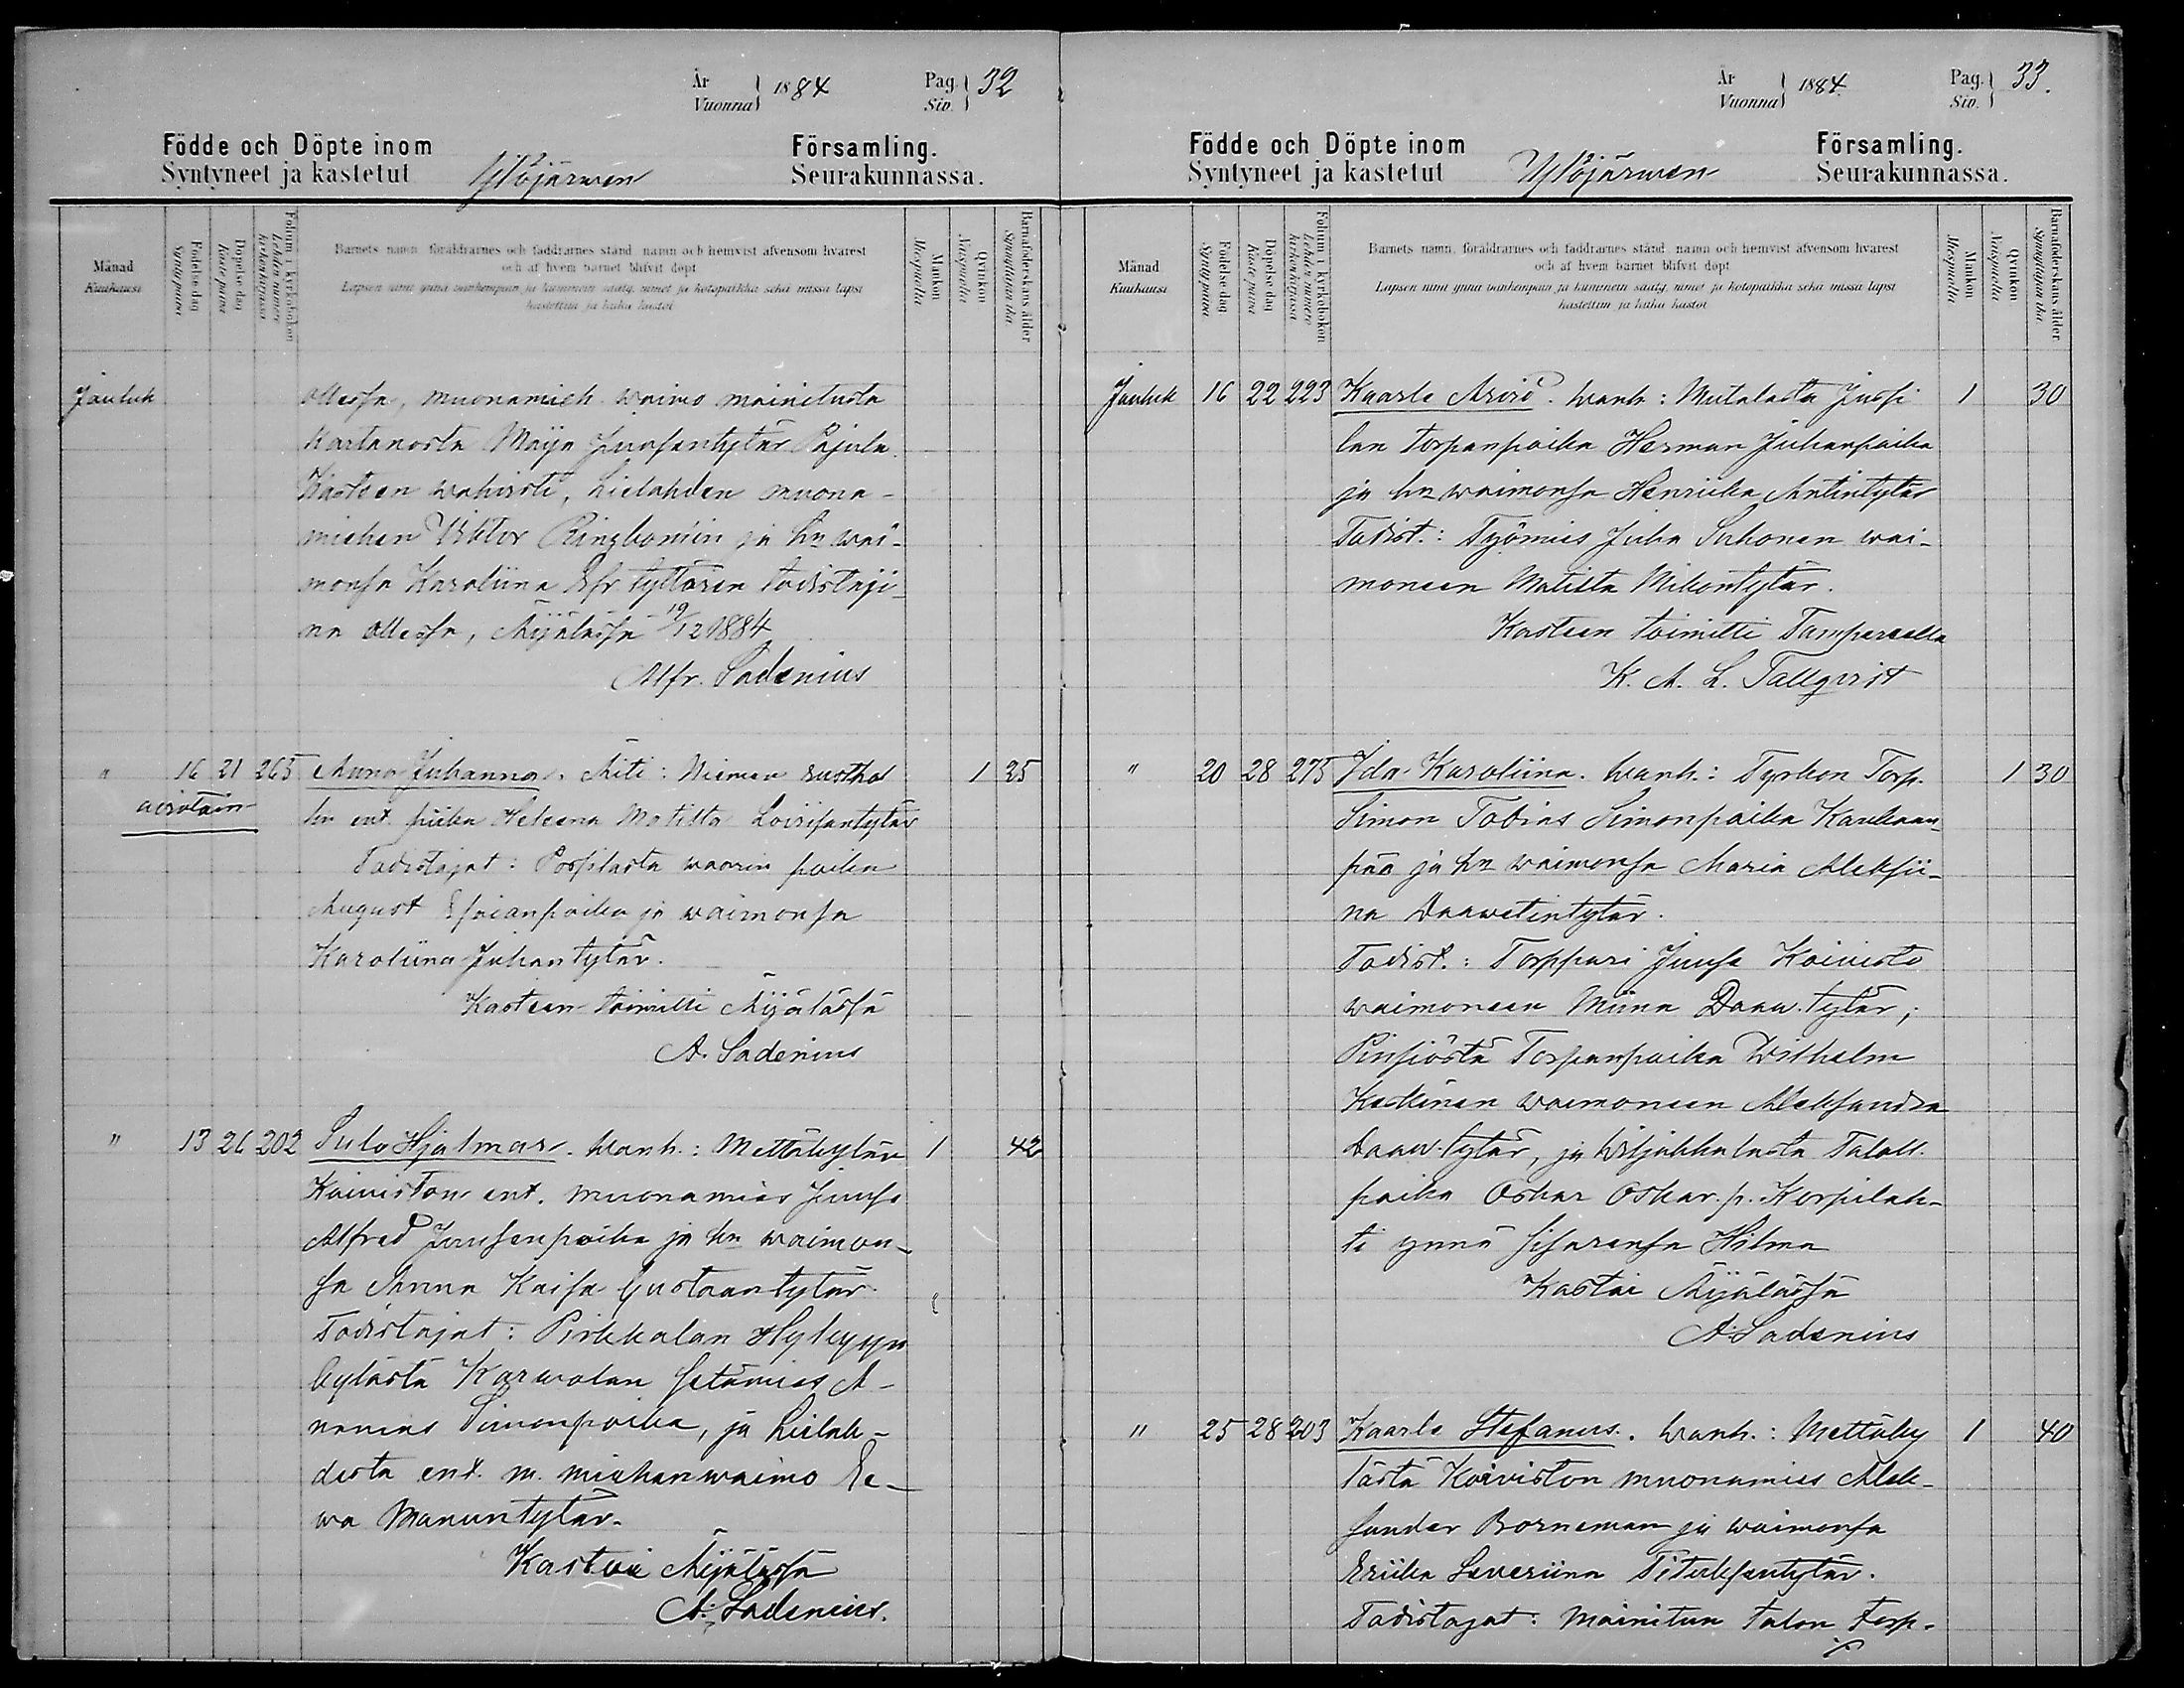 År
Vuonna 1884
Pag.
Siv. 32
Födde och Döpte inom
Syntyneet ja kastetut
Ylöjärwen
Församling.
Seurakunnassa.
Månad
Kuukausi
Födelse dag
Syntypäivä
Döpelse dag
Kastepäivä
Folium i kyrkoboken
Lehden numero kirkonkirjassa
Barnets namn, föräldrarnes och faddrarnes stånd, namn och hemvist äfvensom hvarest
och af hvem barnet blifvit döpt
Lapsen nimi ynnä vanhempain ja kummein sääty, nimet ja kotopaikka sekä missä lapsi
kastettiin ja kuka kastoi
Mankön
Miespuolia
Qvinkön
Naispuolia
Barnaföderskans ålder
Synnyttäjän ikä
Jouluk
ollessa, muonamieh. waimo mainitusta
Kartanosta Maija Juusentytär Pajula.
Kasteen wahwisti, Lielahden muona-
miehen Viktor Ringbomin ja hn wai-
monsa Karoliina Efr. tyttären todistaji-
na ollessa, Äijälässä 19/12 1884
Alfr. Sadenius
" 16 21 265 Anna Juhanna. Äiti: Niemen rusthol 1 35
awiotoin
lin ent. piika Heleena Matilta Lovisantytär
Todistajat: Possilasta waarin poika
August Esaianpoika ja waimonsa
Karoliina Juhantytär.
Kasteen toimitti Äijälässä
A. Sadenius
" 13 26 202 Sulo Hjalmar. Wanh.: Mettäkylän 1 42
Koiviston ent. muonamies Juuse
Alfred Juusenpoika ja hn waimon-
sa Anna Kaisa Gustaantytär
Todistajat: Pirkkalan Hyhkyyn
kylästä Karwolan setämies A-
nanias Simonpoika, ja Lielah-
desta ent. m. miehen waimo Ee-
wa Manuntytär.
Kastoi Äijälässä
A. Sadenius.
År
Vuonna 1884
Pag.
Siv. 33.
Födde och Döpte inom
Syntyneet ja kastetut
Ylöjärwen
Församling.
Seurakunnassa.
Månad
Kuukausi
Födelse dag
Syntypäivä
Döpelse dag
Kastepäivä
Folium i kyrkoboken
Lehden numero kirkonkirjassa
Barnets namn, föräldrarnes och faddrarnes stånd, namn och hemvist äfvensom hvarest
och af hvem barnet blifvit döpt
Lapsen nimi ynnä vanhempain ja kummein sääty, nimet ja kotopaikka sekä missä lapsi
kastettiin ja kuka kastoi
Mankön
Miespuolia
Qvinkön
Naispuolia
Barnaföderskans ålder
Synnyttäjän ikä
Jouluk 16 22 223 Kaarle Arvid. Wanh: Mutalasta Jussi 1 30
lan torpanpoika Herman Juhanpoika
ja hn waimonsa Henriika Antintytär
Todist.: Työmies Juha Sahonen wai-
moneen Matilta Mikontytär.
Kasteen toimitti Tampereella
K. A. L. Tallqvist
" 20 28 275 Ida Karoliina. Wanh.: Tyrkön Torp. 1 30
Simon Tobias Simonpoika Kauhaan-
pää ja hn waimonsa Maria Aleksii-
na Daawetintytär.
Todist.: Torppari Juuse Koivisto
waimoneen Miina Daaw. tytär,
Pinsiöstä Torpanpoika Wilhelm
Keskinen waimoneen Aleksandra
Daaw. tytär, ja Wiljakkalasta Taloll.
poika Oskar Oskar. p. Korpilah-
ti ynnä sisarensa Hilma
Kastoi Äijälässä
A. Sadenius
" 25 28 203 Kaarle Stefanus. Wanh.: Mettäky 1 40
lästä Koiviston muonamies Alek-
sander Borneman ja waimonsa
Eriika Severiina Tituksentytär.
Todistajat: Mainitun talon torp.